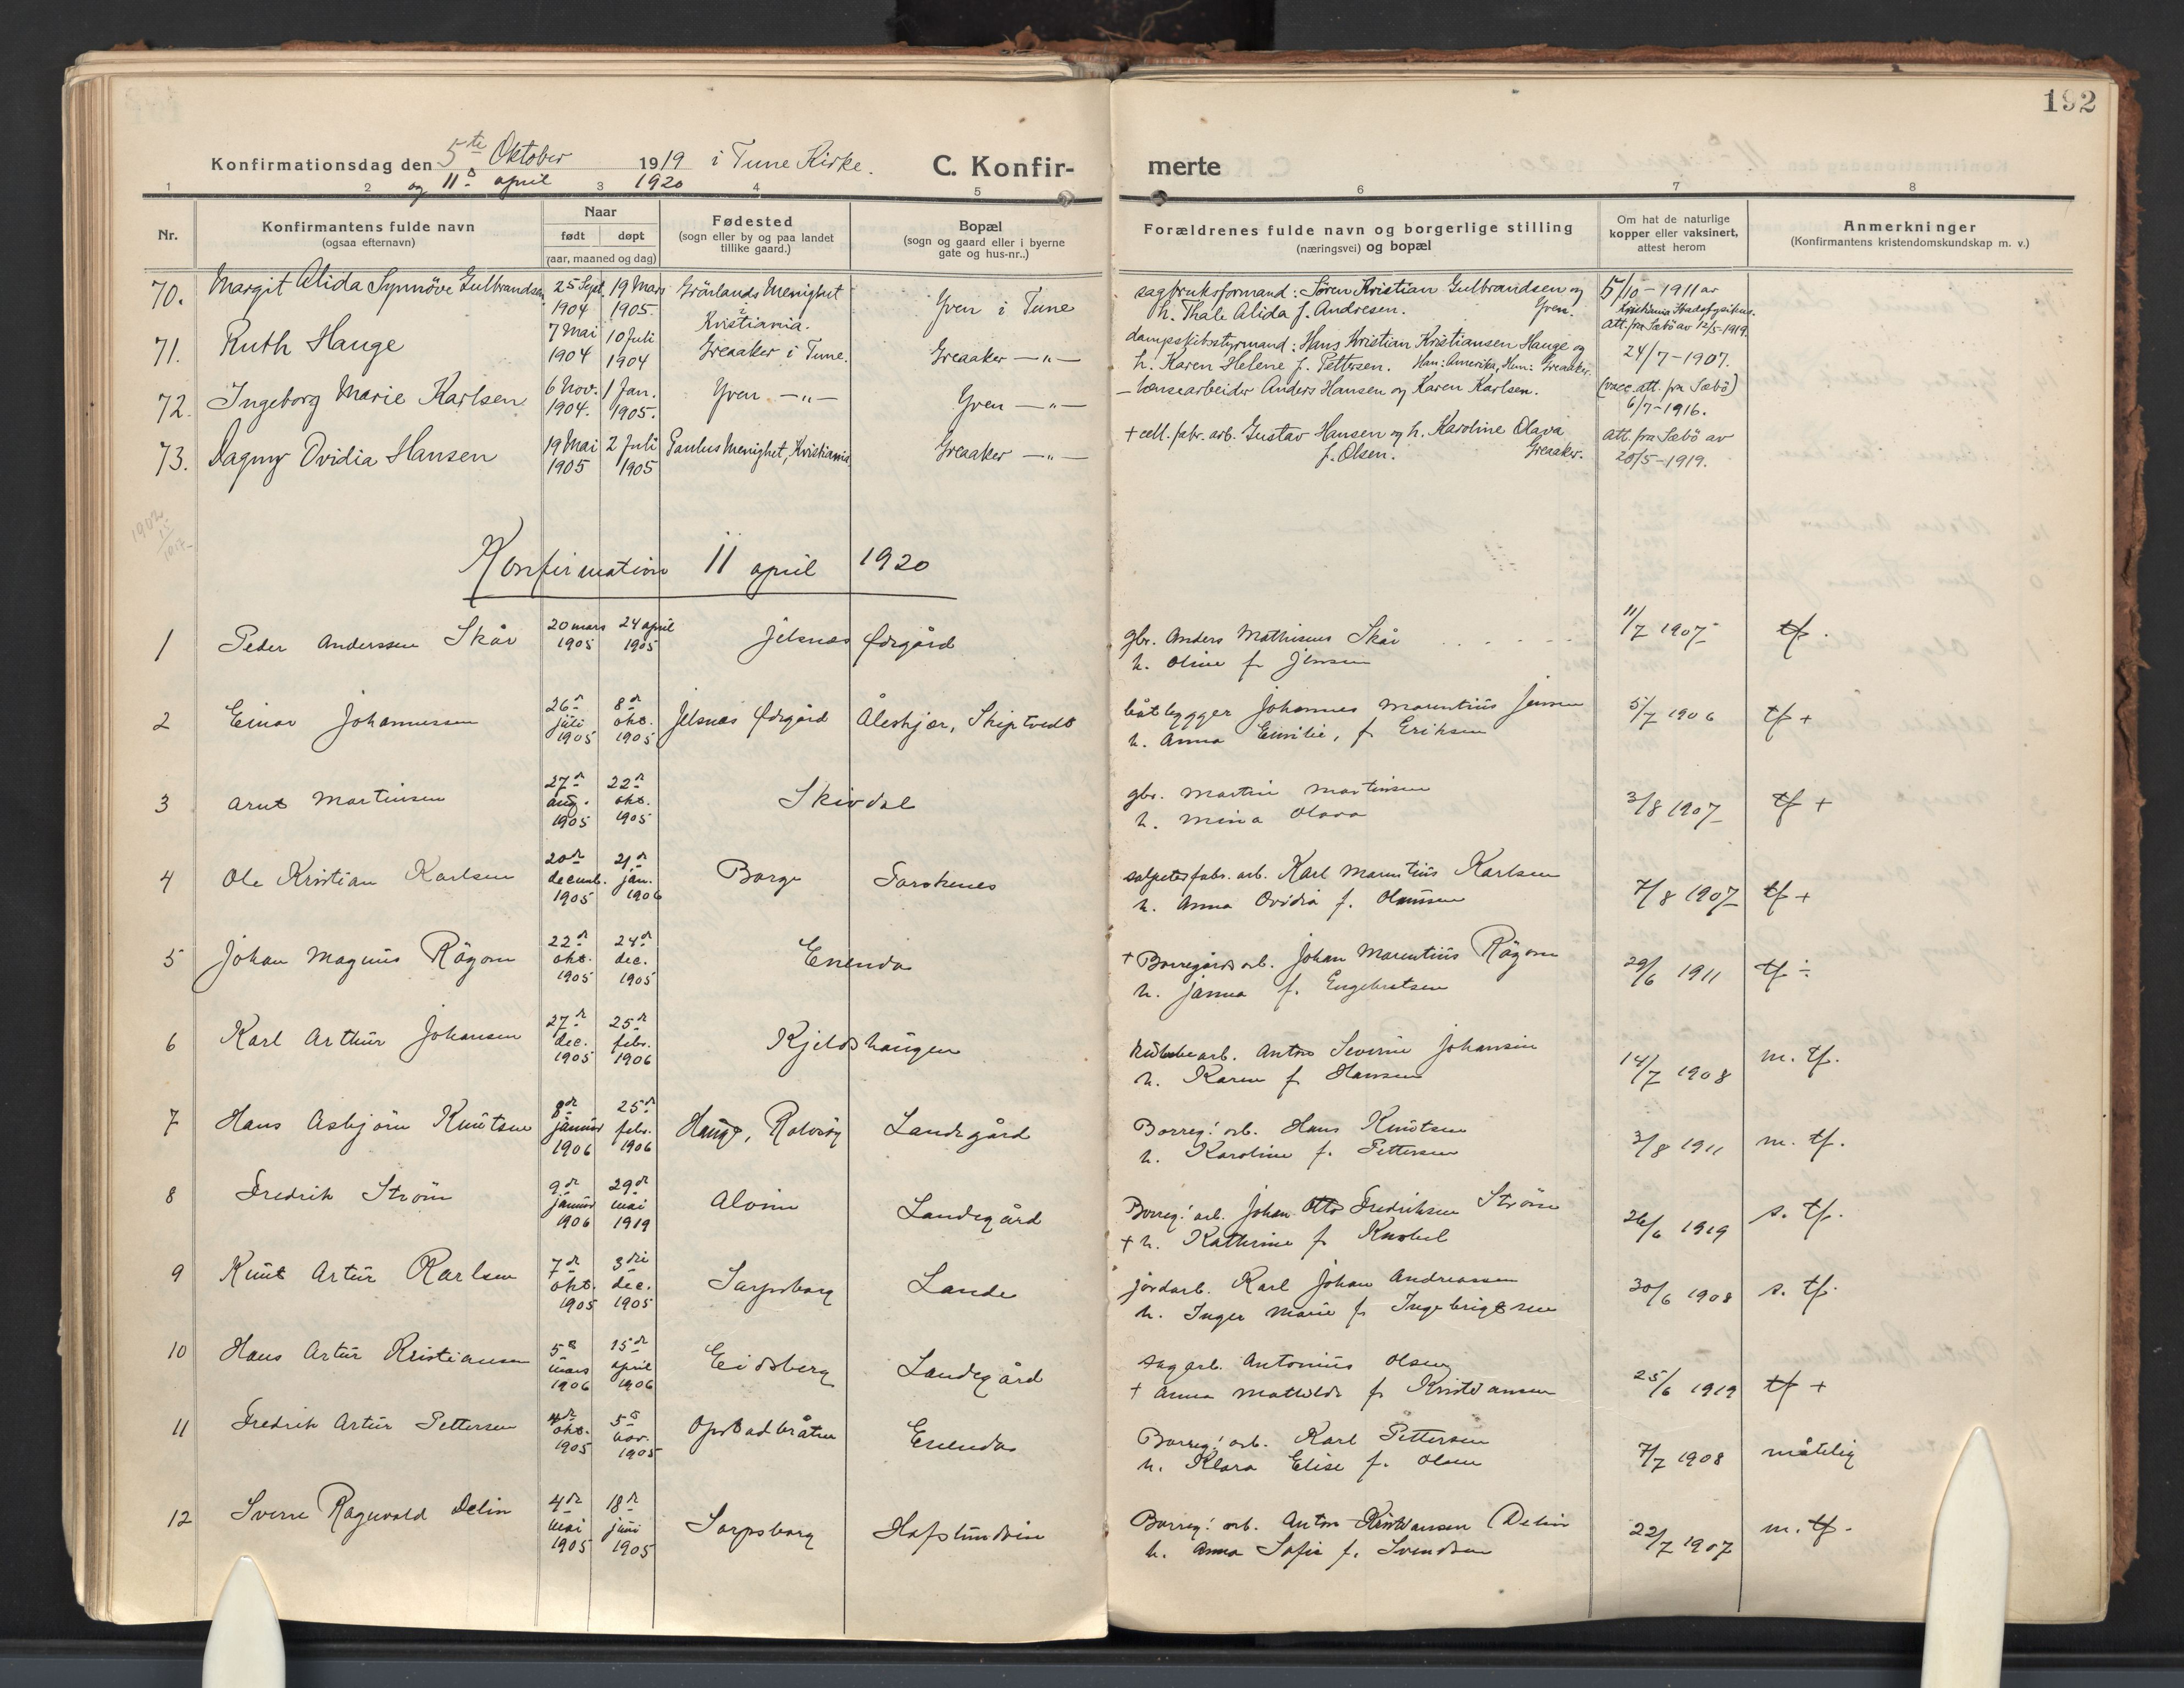 192
Konfirmationsdag den 5te Oktober 1919 i Tune Kirke. C. Konfir- merte
og 11. april 1920
1 2 3 4 5 6 7 8
Nr.
Konfirmantens fulde navn
(ogsaa efternavn)
Naar
født døpt
(aar, maaned og dag)
Fødested
(sogn eller by og paa landet
tillike gaard.)
Bopæl
(sogn og gaard eller i byerne
gate og hus-nr..)
Forældrenes fulde navn og borgerlige stilling
(næringsvei) og bopæl
Om hat de naturlige
kopper eller vaksinert,
attest herom
Anmerkninger
(Konfirmantens kristendomskundskap m. v.)
70. Margit Alida Synnöve Gulbrandsen 25 Sept. 19 Mars Grönlands Menighet Yven i Tune sagbruksformand: Sören Kristian Gulbrandsen og 5/10-1911 av
1904 1905. Kristiania. h. Thale Alida f. Andresen. Yven. Kristiania Stadsfysikus.
att. fra Sæbö av 12/5-1919.
71. Ruth Hauge 7 Mai 10 Juli Greaaker i Tune. Greaaker —"— dampskibsstyrmand: Hans Kristian Kristiansen Hauge og 24/7-1907.
1904 1904 h. Karen Helene f. Pettersen. Han: Amerika, Hun: Greaaker.
72. Ingeborg Marie Karlsen 6 Nov. 1 Jan. Yven —"— Yven —"— lænsearbeider Anders Hansen og Karen Karlsen. (vacc. att. fra Sæbö)
1904. 1905. 6/7-1916.
73. Dagny Ovidia Hansen 19 Mai 2 Juli Paulus Menighet, Kristiania Greaaker —"— + cell. fabr. arb. Gustav Hansen og h. Karoline Olava att. fra Sæbö av
1905 1905 f. Olsen. Greaaker. 20/5-1919.
Konfirmation 11 april 1920
1 Peder Anderssen Skår 20 mars 24 april Jelsnes Ørgård gbr. Anders Mathisens Skår 11/7 1907 tf.
1905 1905 h. Oline f. Jensen
2 Einar Johannessen 26. 8. Jelsnes Ørgård Åleskjær, Skiptvedt båtbygger Johannes Marentius Jensen 5/7 1906 tf +
juli okt. h. Anna Emilie, f. Eriksen
1905 1905
3 Arnt Martinsen 27. 22. Skivdal gbr. Martin Martinsen 3/8 1907 tf +
aug. okt. h. Mina Olava
1905 1905
4 Ole Kristian Karlsen 20. 21. Borge Torskenes salpeterfabr. arb. Karl Marentius Karlsen 7/8 1907 tf +
decemb. jan. h. Anna Ovidia f.
1905 1906
5 Johan Magnus Rågom 22. 24. Enenda + Borregårds arb. Johan Marentius Rågom 29/6 1911 tf ÷
okt. dec. h. Janna f. Engebretsen
1905 1905
6 Karl Arthur Johansen 27. 25. Kjeldshaugen arb. Anton Severin Johansen 14/7 1908 m. tf.
dec. febr. h. Karen f. Hansen
1905 1906
7 Hans Asbjörn Knutsen 8de 25. Hauge, Rolvsöy Landegård Borreg! arb. Hans Knutsen 3/8 1911 m. tf.
januar febr. h. Karoline f. Pettersen
1906 1906
8 Fredrik Ström 9de 29de Alvim Landegård Borreg! arb. Johan Otto Fredriksen Ström 26/6 1919 s. tf.
januar mai + h. Kathrine f. Knobel
1906 1919
9 Knut Artur Karlsen 7de 3die Sarpsborg Lande jordarb. Karl Johan Andreassen 30/6 1908 s. tf.
okt. dec. h. Inger Marie f. Ingebrigtsen
1905 1905
10 Hans Artur Kristiansen 5. 15de Eidsberg Landegård sagarb. Antonius Olsen 25/6 1919 tf +
mars april + Anna Mathilde f. Kristiansen
1906 1906
11 Fredrik Artur Pettersen 4de 5. Opstadbråten Enenda Borreg! arb. Karl Pettersen 7/7 1908 måtelig
okt. nov. h. Klara Elise f. Olsen
1905 1905
12 Sverre Ragnvald Delin 4de 18. Sarpsborg Hafslundsin Borreg! arb. Anton Kristiansen Delin 22/7 1907 m. tf.
mai juni h. Anna Sofie f. Svendsen
1905 1905